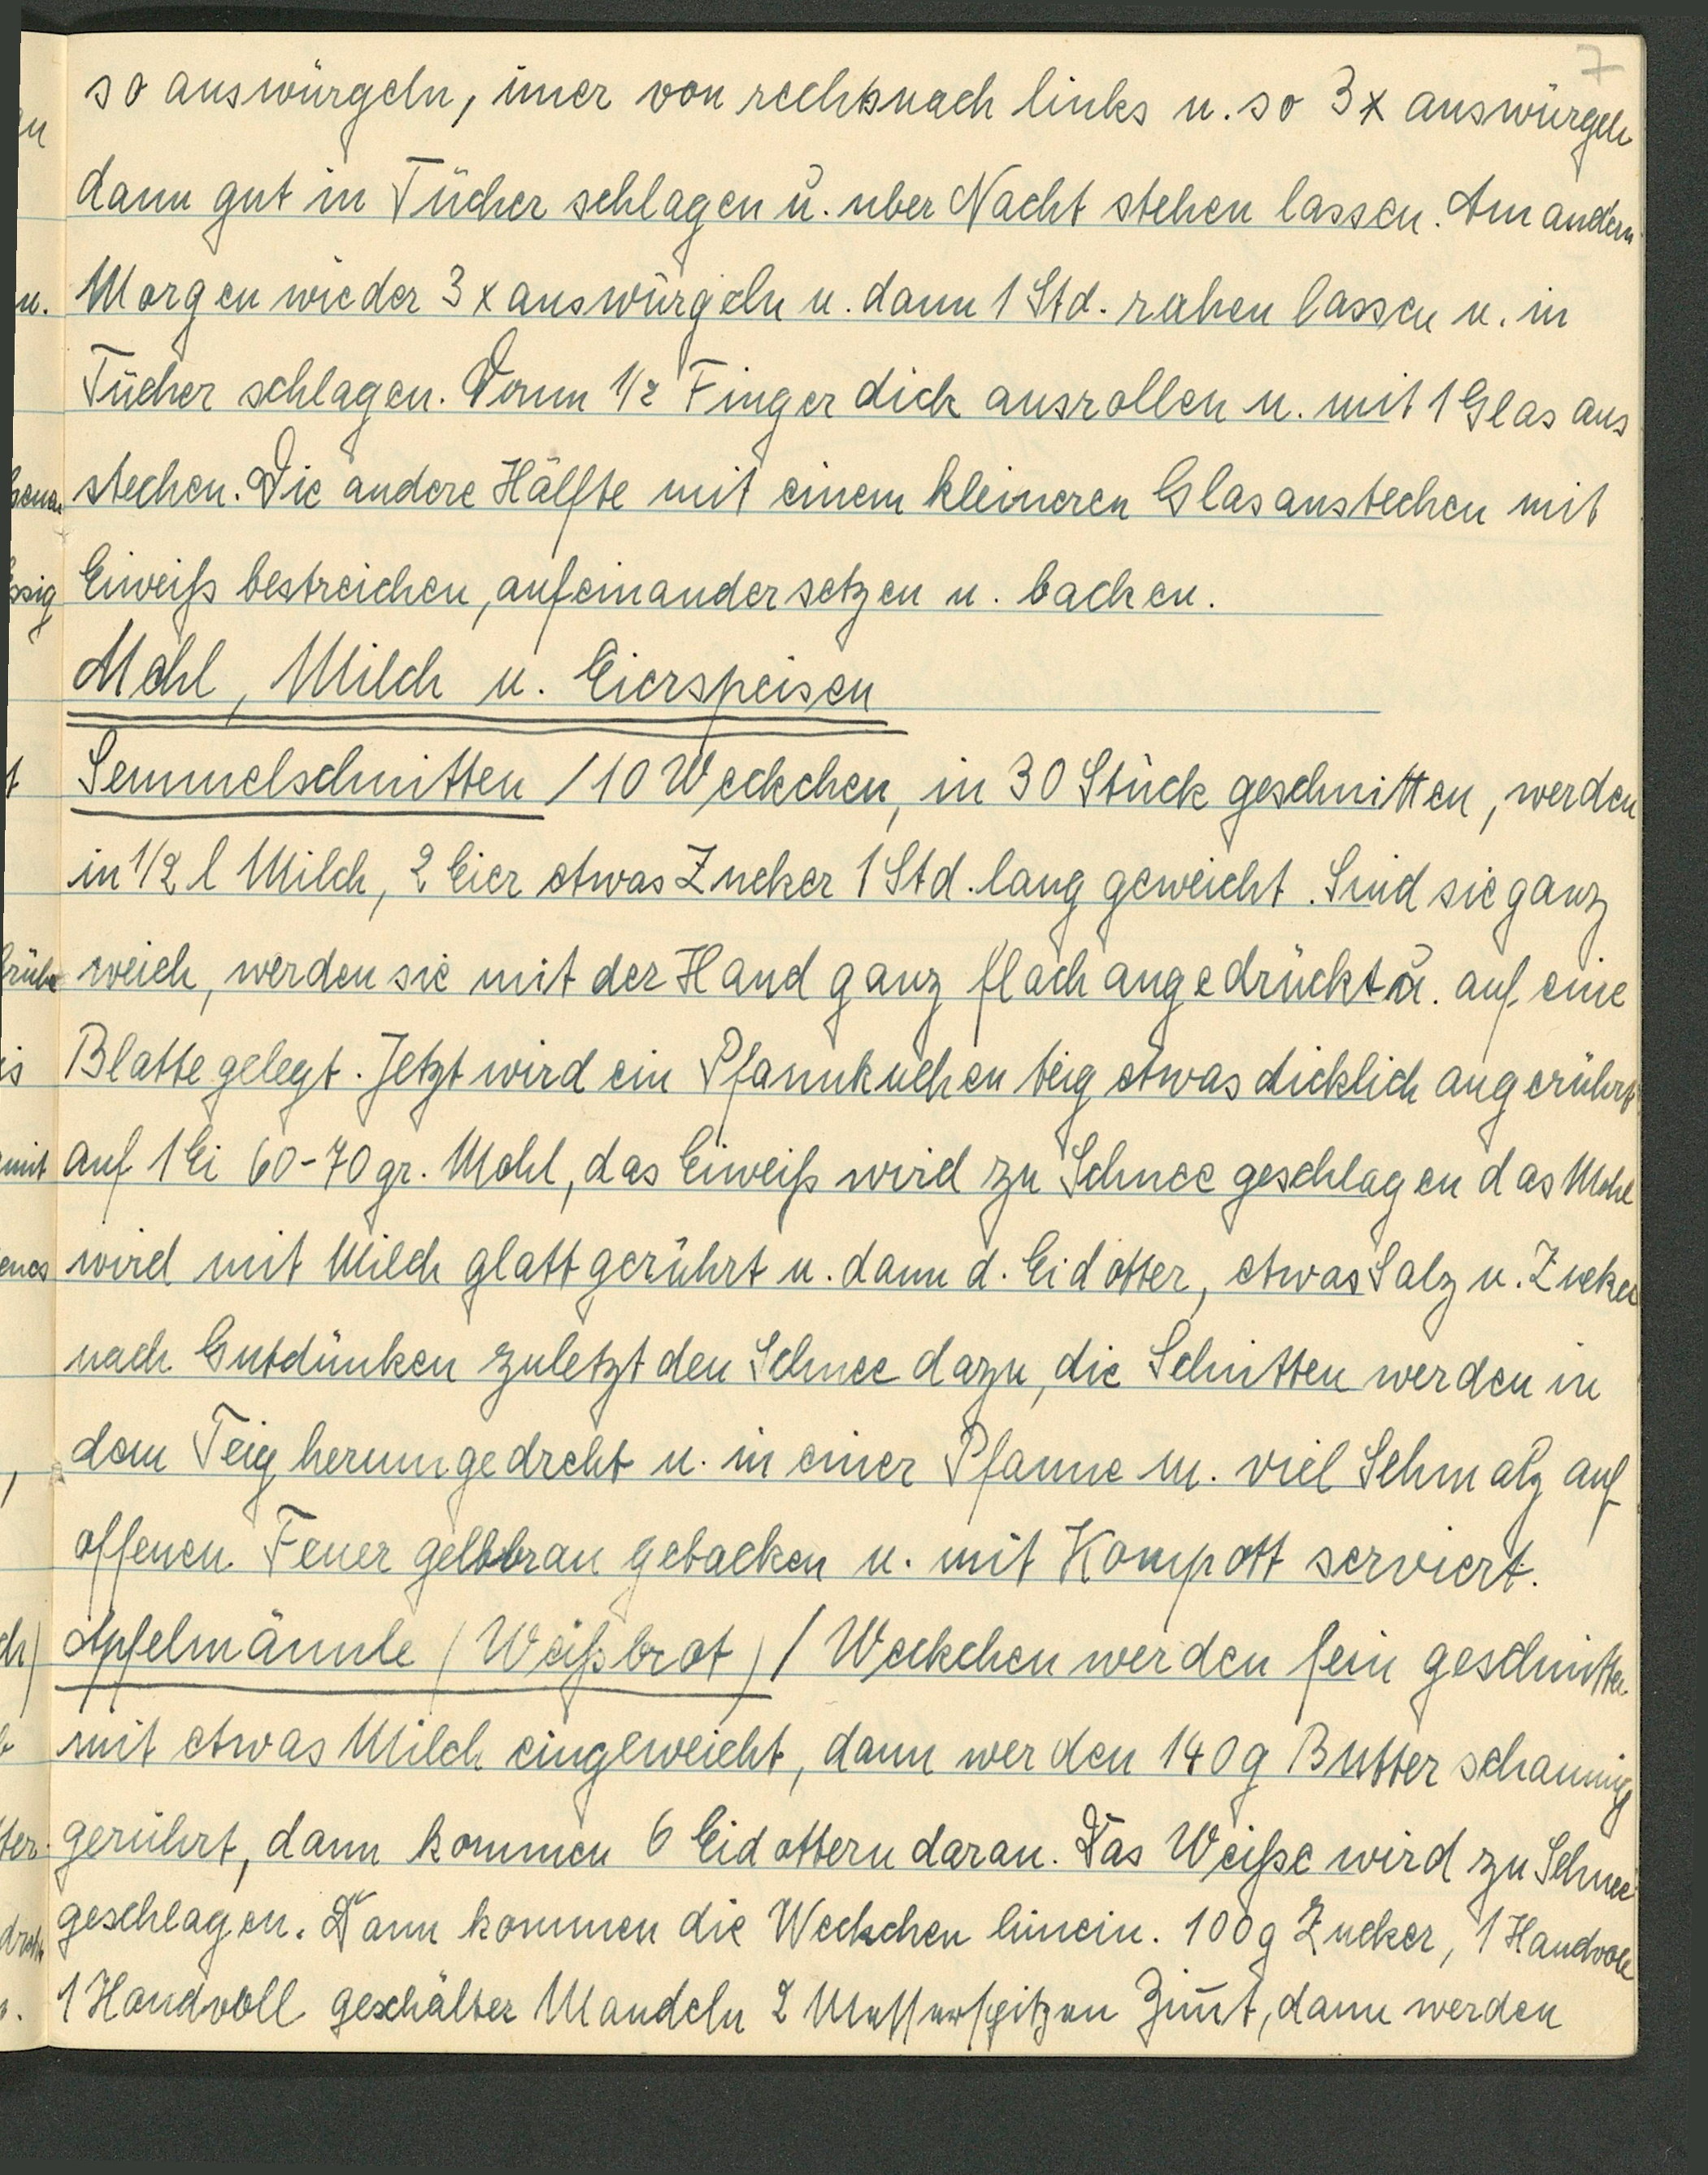 7
so auswürgeln, im̄er von rechts nach links u. so 3x auswürgeln
dann gut in Tücher schlagen ŭ. uber Nacht stehen lassen. Am andern
Morgen wieder 3x auswürgeln u. dann 1 Std. ruhen lassen u. in
Tücher schlagen. Dann 1/2 Finger dick ausrollen u. mit 1 Glas aus
stechen. Die andere Hälfte mit einem kleineren Glas ausstechen mit
Eiweiß bestreichen, aufeinander setzen u. backen.
Mehl, Milch u. Eierspeisen
Semmelschnitten / 10 Weckchen, in 30 Stück geschnitten, werden
in 1/2 l Milch, 2 Eier etwas Zucker 1 Std. lang geweicht. Sind sie ganz
weich, werden sie mit der Hand ganz flach angedrückt ŭ. auf eine
Blatte gelegt. Jetzt wird ein Pfannkuchenteig etwas dicklich angerührt
auf 1 Ei 60-70 gr. Mehl, das Eiweiß wird zu Schnee geschlagen das Mehl
wird mit Milch glatt gerührt u. dann d. Eidotter, etwas Salz u. Zucker
nach Gutdünken zuletzt den Schnee dazu, die Schnitten werden in
dem Teig herumgedreht u. in einer Pfanne m. viel Schmalz auf
offenen Feuer gelbbraun gebacken u. mit Kompott serviert.
Apfelmännle (Weißbrot) / Weckchen werden fein geschnitten
mit etwas Milch eingeweicht, dann werden 140 g Butter schaumig
gerührt, dann kommen 6 Eidottern daran. Das Weiße wird zu Schnee
geschlagen. Dann kommen die Weckchen hinein. 100 g Zucker, 1 Handvoll
1 Handvoll geschälter Mandeln 2 Messerspitzen Zim̄t, dann werden